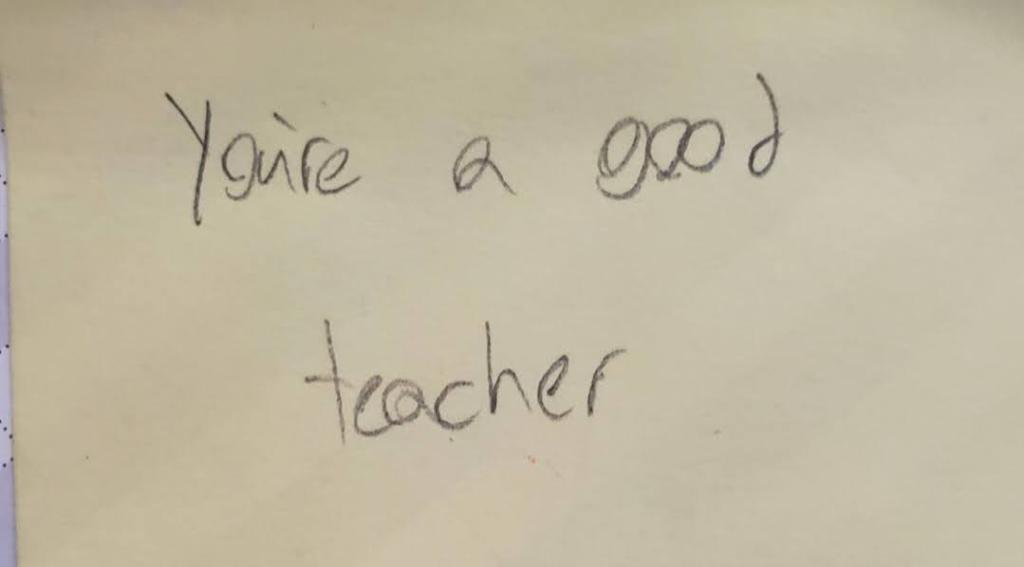 You're a good
teacher